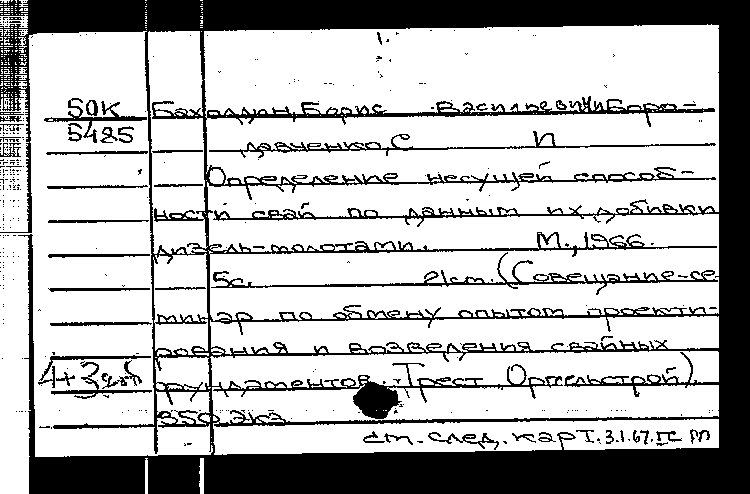 50К Бахолдин, Борис Васильевич и Боро-
5485 давченко, С П
Определение несущей способ-
ности свай по данным их добивки
дизель-молотами. М., 1966.
5с. 21см. (Совещание-се
минар по обмену опытом проекти-
рования и возведения свайных
4+3 фундаментов. Трест Оргтельстрой).
350 экз
см. след. карт. 3.1.67. М